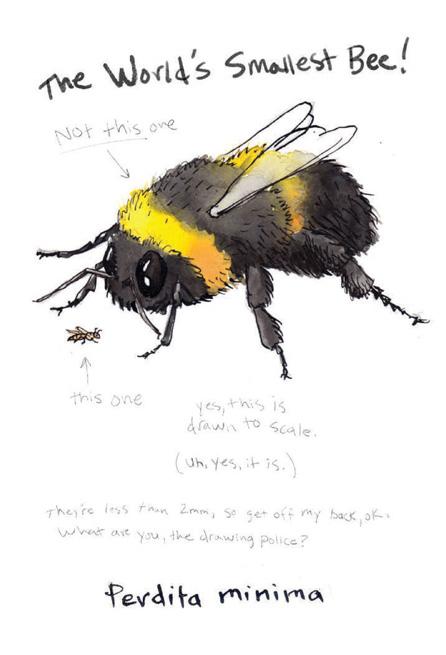 The World's Smallest Bee!
Not this one
this one
yes, this is
drawn to scale.
(uh, yes, it is.)
They're less than 2mm, so get off my back, ok.
What are you, the drawing police?
Perdita minima